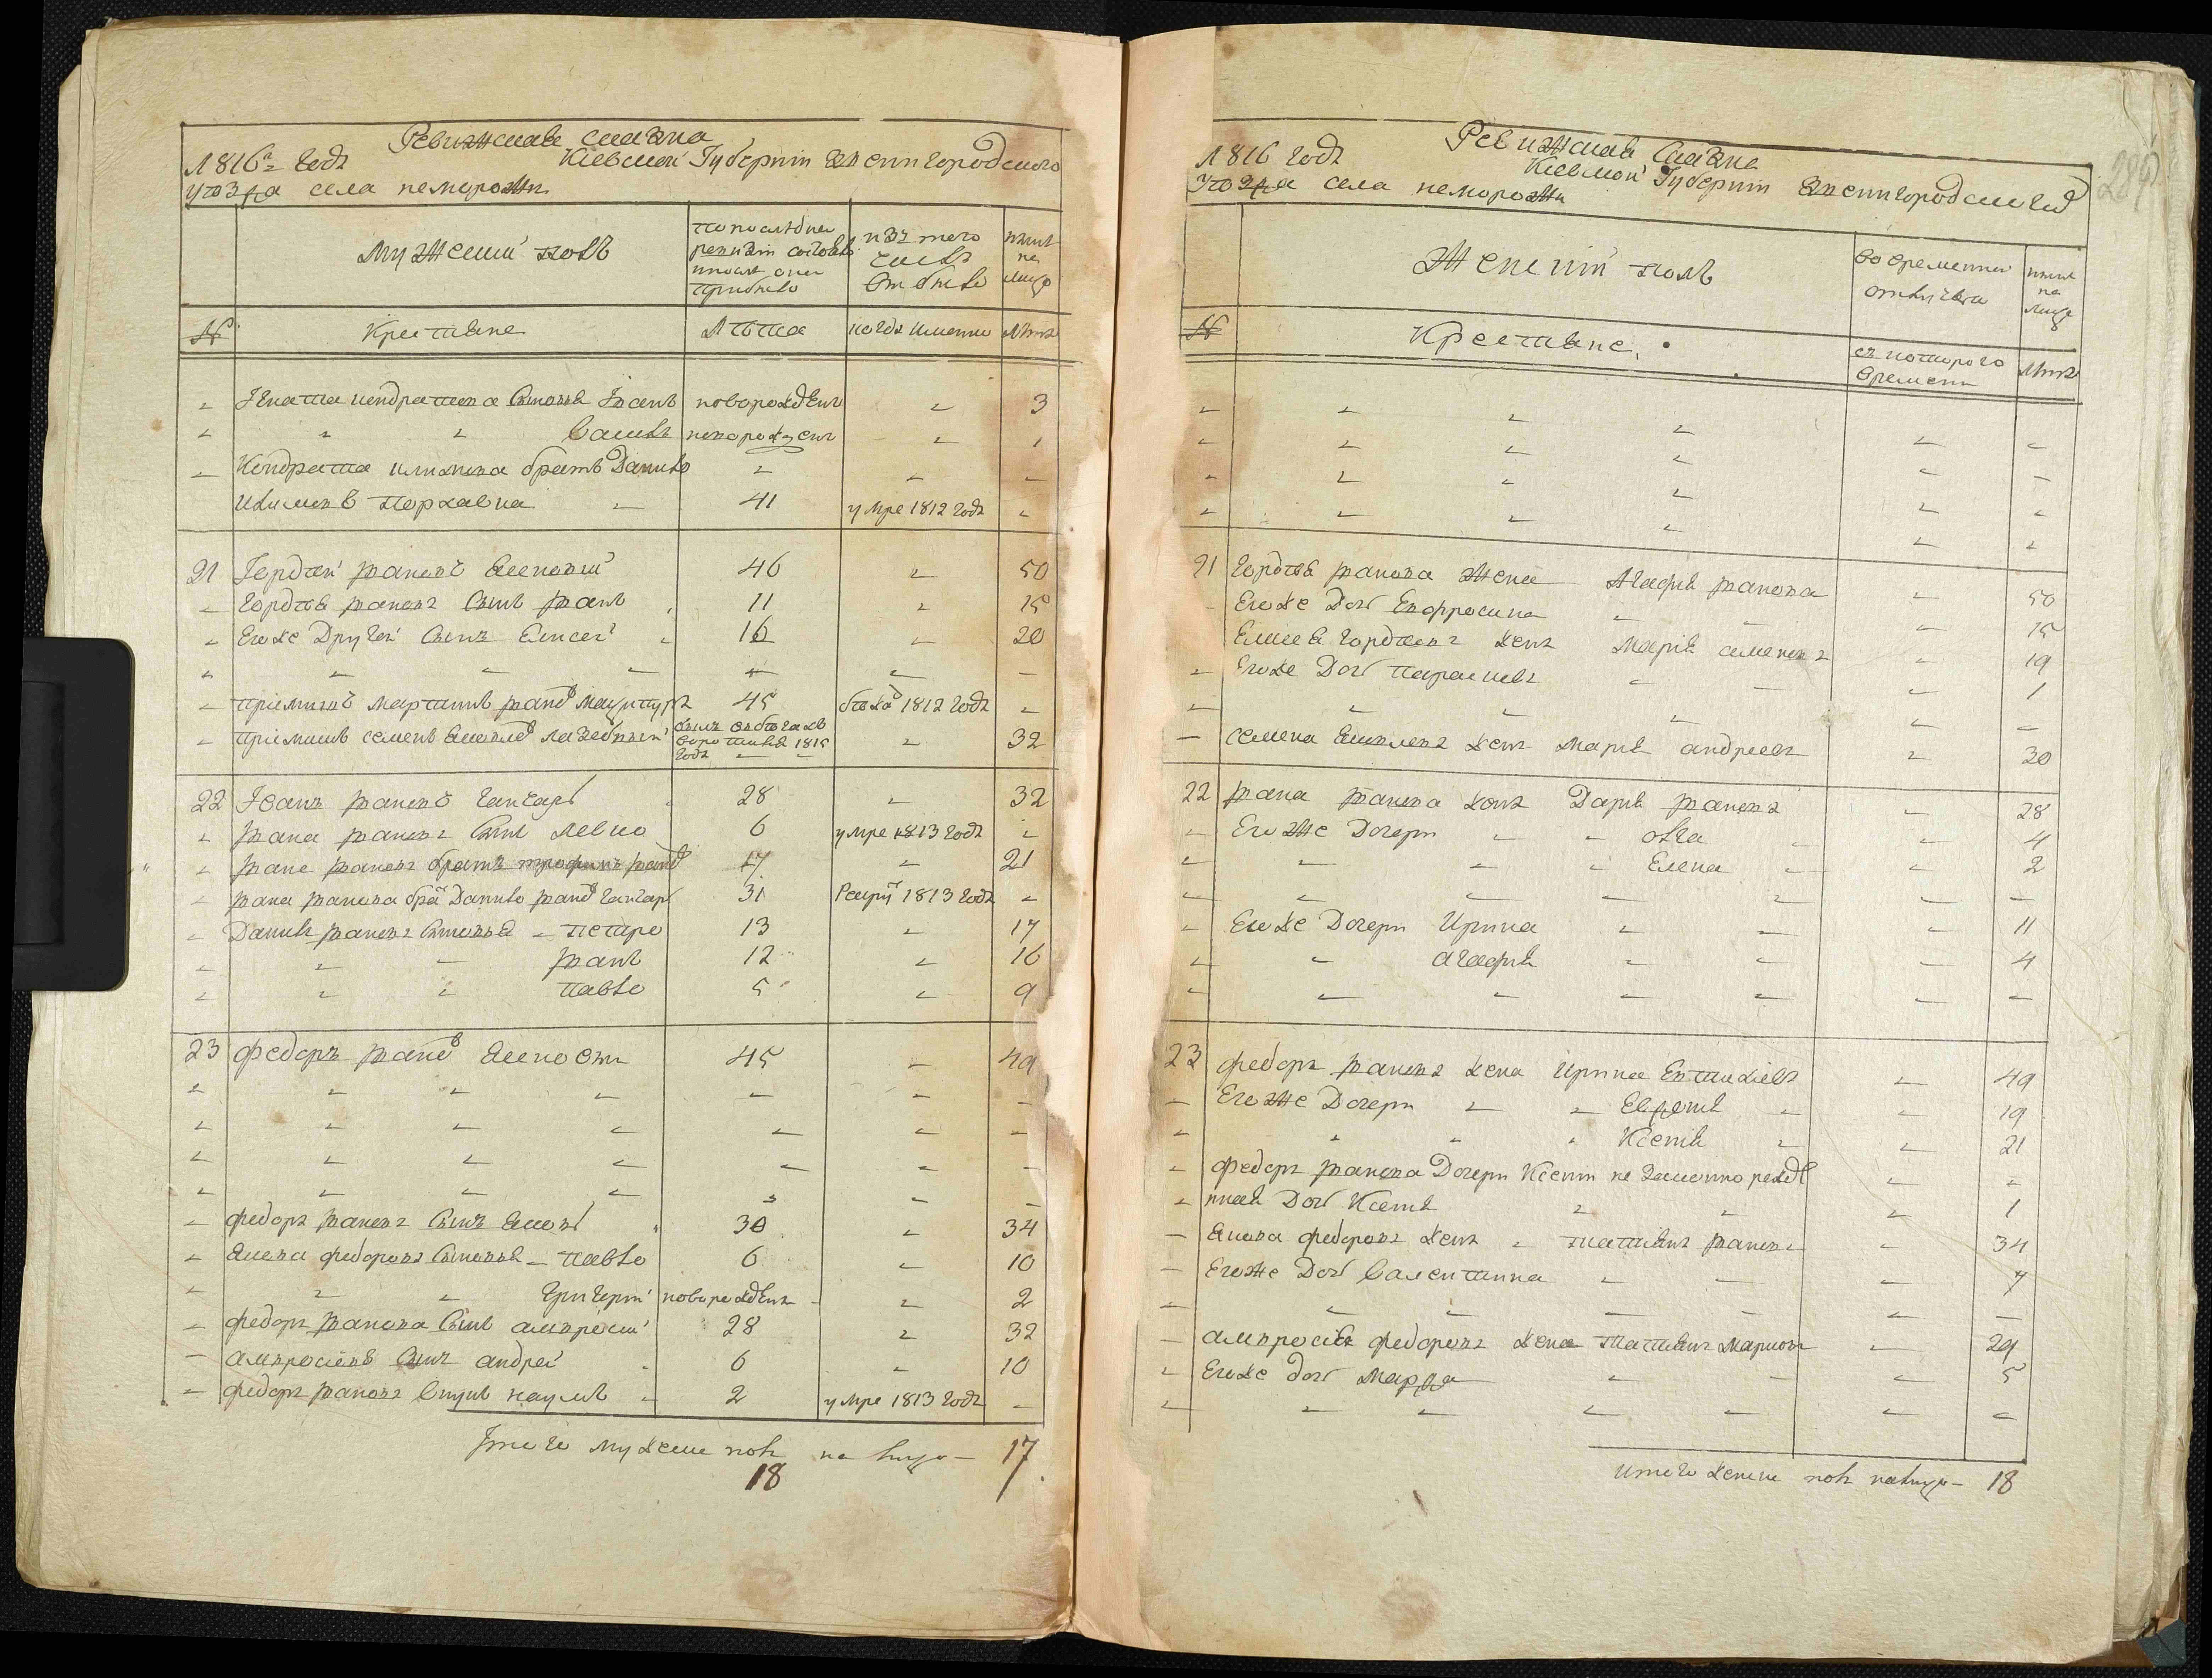 Ревижская сказка
1816го Года Кіевской Губерніи Звенигородского
уезда села неморожи
Мужеский полъ
по последней ревизіи состояло и после оной прибыло
изъ того числа выбыло
ныне на лицо
№ Крестьяне Лета когда именно Лета
Игната кондратова сыновья Иванъ новорожденъ 3
Василь новорожденъ 1
Кондрата климова братъ Данило
Климовъ порхавка 41 умре 1812 Года
21 Гордей Ивановъ 46 50
Гордея Иванова сынъ Иванъ 11 15
Его же Другой сынъ Елисей 16 20
пріймичъ мартинъ Ивановъ 45 бежалъ 1812 Года
пріймычъ семенъ Яковлевъ 1815 Года 32
22 Иванъ Ивановъ Ганчаръ 28 32
Ивана Иванова сынъ Левко 6 умре 1813 Года
Ивана Иванова братъ трофимъ Ивановъ 17 21
Ивана Иванова братъ Данило Ивановъ Ганчаръ 31 Рекрутъ 1813 Года
Данила Иванова сыновья петро 13 17
Иванъ 12 16
павло 5 9
23 федоръ Ивановъ 45 49
федора Иванова сынъ Яковъ 30 34
Якова федорова сыновья павло 6 10
Григорій новорожденъ 2
федора Иванова сынъ амвросій 28 32
амвросіевъ сынъ андрей 6 10
федора Иванова сынъ наумъ 2 умре 1813 Года
Итого мужеска пола на лицо 17
18
Ревижская Сказка
1816 Года Кіевской Губерніи Звенигородского
уезда села неморожи
289
Женскій полъ
во временной отлучке
ныне на лицо
№ Крестьяне съ которого времени Лета
21 Гордея Иванова жена Агафія Иванова 50
Его же Дочь Евфросина 15
Елисея Гордеева жена марія семенова 19
Его же Дочь параскева 1
семена Яковлева жена марія андреева 30
22 Ивана Иванова жена Дарія Иванова 28
Его же Дочери олга 4
Елена 2
Его же Дочери Ирина 11
агафія 4
23 федора Иванова жена Ирина Евтихіева 49
Его же Дочери 19
Ксенія 21
федора Иванова Дочери Ксеніи не законно рожде
нная Дочь Ксенія 1
Якова федорова жена татіана Иванова 34
Его же Дочь Валентина 7
амвросія федорова жена татіана Маркова 29
Его же дочь марфа 5
итого женска пола на лицо 18